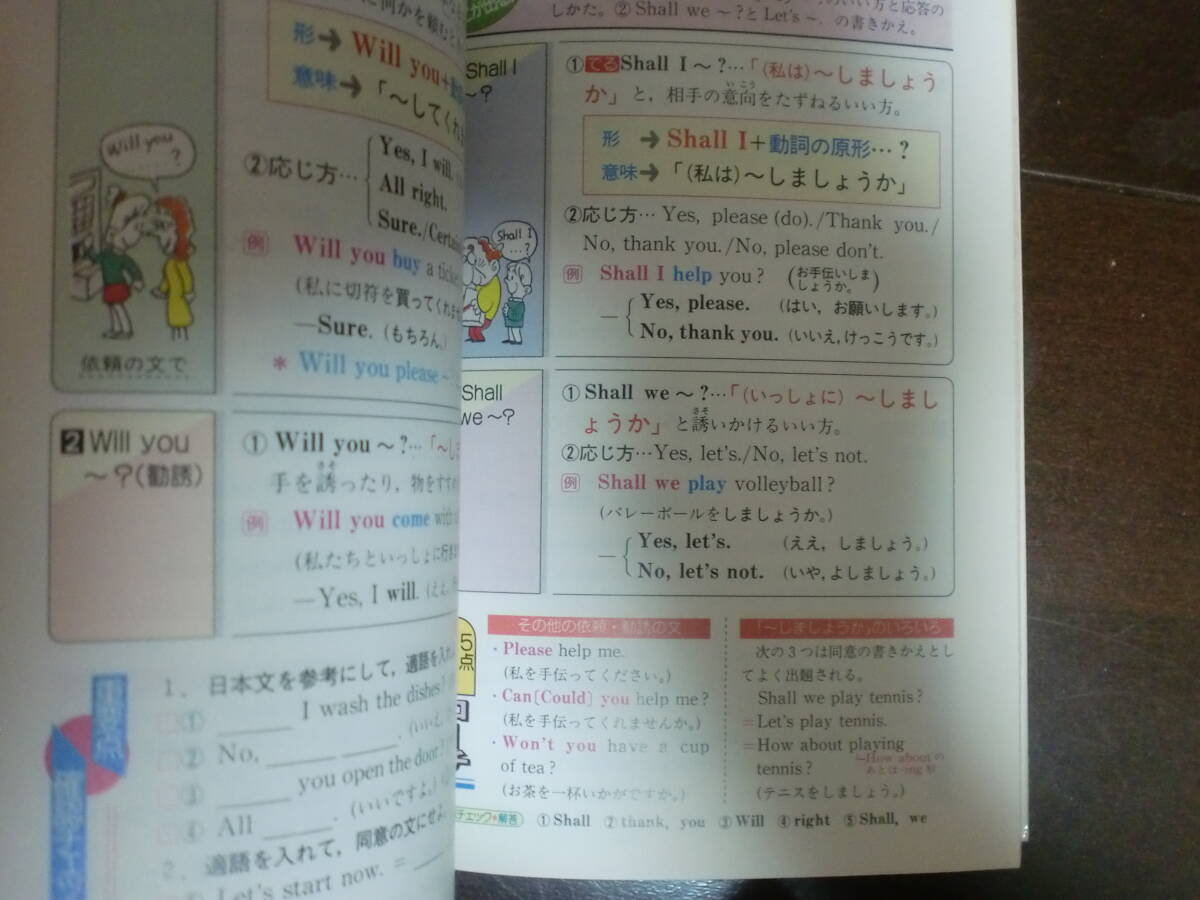 に何かを頼むと
形→ Will you+
意味→「～してくれ
Will you
?
②応じ方…
Yes, I will.
All right.
Sure./Certain
例 Will you buy a ticke
(私に切符を買ってくれま
—Sure. (もちろん。)
* Will you please ～
依頼の文で
2 Will you
～?(勧誘)
① Will you ～?…「～し
手を誘ったり，物をすす
さそ
例 Will you come with u
(私たちといっしょに行き
—Yes, I will. (ええ，
1. 日本文を参考にして，適語を入れ
① ____ I wash the dishes?
② No, ____ ____. (いいえ，
③ ____ you open the door?
④ All ____. (いいですよ。)
2. 適語を入れて，同意の文にせよ。
Let's start now. = ____
のいい方と応答の
しかた。② Shall we ～?と Let's ～. の書きかえ。
Shall I
～?
Shall I
…?
①でるShall I ～?…「(私は)～しましょう
か」と，相手の意向をたずねるいい方。
いこう
形 → Shall I+動詞の原形…?
意味→「(私は)～しましょうか」
②応じ方… Yes, please (do)./Thank you./
No, thank you./No, please don't.
例 Shall I help you? (お手伝いしま
しょうか。)
—Yes, please. (はい，お願いします。)
No, thank you. (いいえ，けっこうです。)
Shall
we～?
① Shall we ～?…「(いっしょに) ～しまし
ょうか」と誘いかけるいい方。
さそ
②応じ方…Yes, let's./No, let's not.
例 Shall we play volleyball?
(バレーボールをしましょうか。)
—Yes, let's. (ええ，しましょう。)
No, let's not. (いや，よしましょう。)
5点
その他の依頼・勧誘の文
・Please help me.
(私を手伝ってください。)
・Can[Could] you help me?
(私を手伝ってくれませんか。)
・Won't you have a cup
of tea?
(お茶を一杯いかがですか。)
「～しましょうか」のいろいろ
次の3つは同意の書きかえとし
てよく出題される。
Shall we play tennis?
=Let's play tennis.
=How about playing
tennis?
How about の
あとは-ing形
(テニスをしましょう。)
チェックの解答 ①Shall ②thank, you ③Will ④right ⑤Shall, we